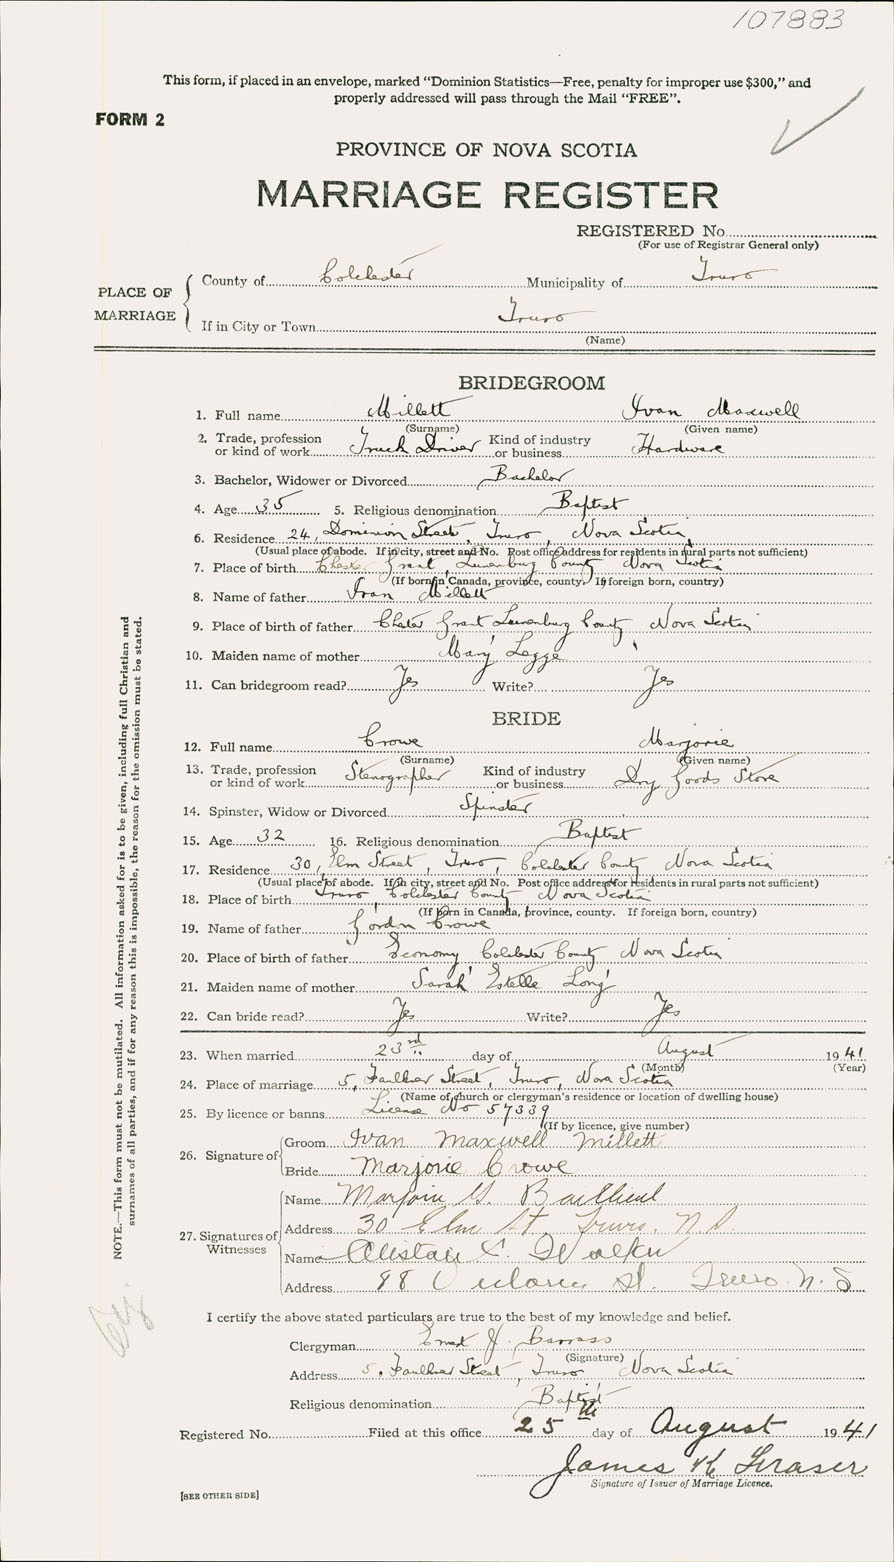 107883
This form, if placed in an envelope, marked “Dominion Statistics—Free, penalty for improper use $300,” and
properly addressed will pass through the Mail “FREE”.
FORM 2
PROVINCE OF NOVA SCOTIA
MARRIAGE REGISTER
REGISTERED No.
(For use of Registrar General only)
PLACE OF MARRIAGE
County of Colchester Municipality of Truro
If in City or Town Truro
(Name)
BRIDEGROOM
1. Full name Millett Ivan Maxwell
(Surname) (Given name)
2. Trade, profession or kind of work Truck Driver Kind of industry or business Hardware
3. Bachelor, Widower or Divorced Bachelor
4. Age 35 5. Religious denomination Baptist
6. Residence 24, Dominion Street, Truro, Nova Scotia
(Usual place of abode. If in city, street and No. Post office address for residents in rural parts not sufficient)
7. Place of birth Chester Grant, Lunenburg County Nova Scotia
(If born in Canada, province, county. If foreign born, country)
8. Name of father Ivan Millett
9. Place of birth of father Chester Grant Lunenburg County Nova Scotia
10. Maiden name of mother Mary Legge
11. Can bridegroom read? Yes Write? Yes
BRIDE
12. Full name Crowe Marjorie
(Surname) (Given name)
13. Trade, profession or kind of work Stenographer Kind of industry or business Dry Goods Store
14. Spinster, Widow or Divorced Spinster
15. Age 32 16. Religious denomination Baptist
17. Residence 30, Elm Street, Truro, Colchester County Nova Scotia
(Usual place of abode. If in city, street and No. Post office address for residents in rural parts not sufficient)
18. Place of birth Truro, Colchester County Nova Scotia
(If born in Canada, province, county. If foreign born, country)
19. Name of father Gordon Crowe
20. Place of birth of father Economy Colchester County Nova Scotia
21. Maiden name of mother Sarah Estelle Long
22. Can bride read? Yes Write? Yes
23. When married 23rd day of August 1941
(Month) (Year)
24. Place of marriage 5, Faulkner Street, Truro, Nova Scotia
(Name of church or clergyman's residence or location of dwelling house)
25. By licence or banns License No 57339
(If by licence, give number)
26. Signature of
Groom Ivan Maxwell Millett
Bride Marjorie Crowe
27. Signatures of Witnesses
Name Marjorie G
Address 30 Elm St Truro, N.S.
Name Alistair Walker
Address 98 Victoria St. Truro. N.S
I certify the above stated particulars are true to the best of my knowledge and belief.
Clergyman J. Barrass
(Signature)
Address 5, Faulkner Street, Truro Nova Scotia
Religious denomination Baptist
Registered No. Filed at this office 25th day of August 1941
James K Fraser
Signature of Issuer of Marriage Licence.
[SEE OTHER SIDE]
NOTE.—This form must not be mutilated. All information asked for is to be given, including full Christian and
surnames of all parties, and if for any reason this is impossible, the reason for the omission must be stated.